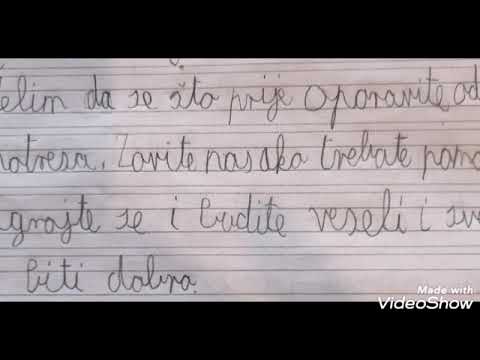 elim da se što prije oporavite od
potresa. Zovite nas ako trebate pomo
grajte se i budite veseli i sv
biti dobro.
Made with
VideoShow